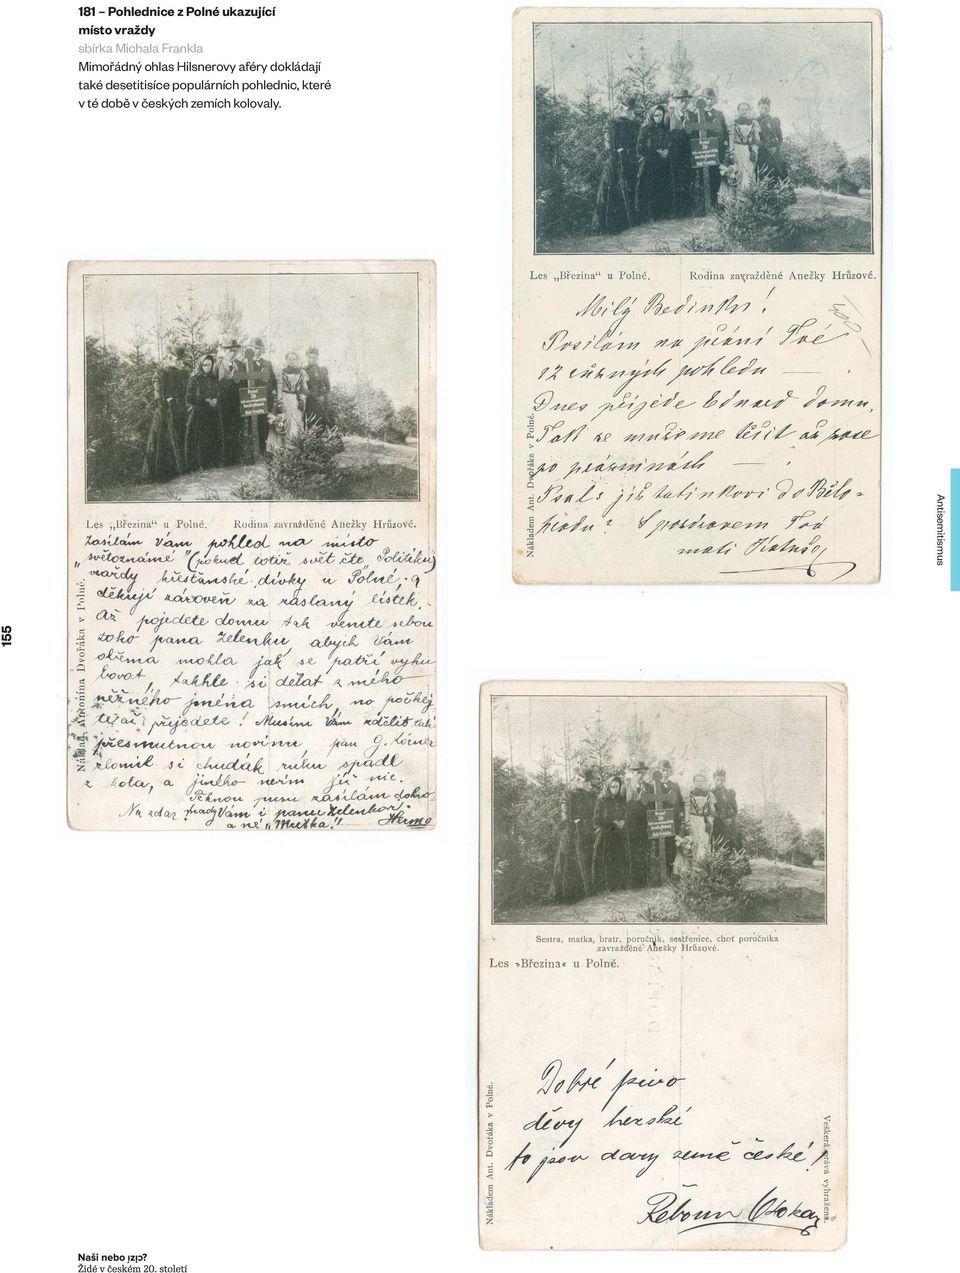 181 – Pohlednice z Polné ukazující
místo vraždy
sbírka Michala Frankla
Mimořádný ohlas Hilsnerovy aféry dokládají
také desetitisíce populárních pohlednic, které
v té době v českých zemích kolovaly.
Les „Březina“ u Polné. Rodina zavražděné Anežky Hrůzové.
Milý Bedinku!
Posílám na přání Tvé
12 různých pohledů — .
Dnes přijede Eduard domu,
Tak se můžeme těšit až zase
po prázninách — .
Psals již tatínkovi do Bělo-
hradu? S pozdravem Tvá
mati
Nákladem Ant. Dvořáka v Polné.
Les „Březina“ u Polné. Rodina zavražděné Anežky Hrůzové.
Zasílám Vám pohled na místo
„světoznámé“ (pokud totiž svět čte Politiku)
vraždy křesťanské dívky u Polné, a
děkuji zároveň za zaslaný lístek.
Až pojedete domu tak vemte sebou
toho pana Zelenku, abych Vám
oběma mohla jak se patří vyhu
bovat, takhle si dělat z mého
něžného jména smích, no počkej
te až přijedete! Musím Vám zdělit také
přesmutnou novinu pan G. Körner
zlomil si chudák ruku spadl
z kola, a jiného nevím již nic.
Pěknou pusu zasílám dobro
Na zdar mady Vám i panu Zelenkovi
a né „Muška“! Hermo
Náklad. Antonína Dvořáka v Polné.
Sestra, matka, bratr, poručník, sestřenice, choť poručníka
zavražděné Anežky Hrůzové.
Les »Březina« u Polné.
Dobré pivo
děvy hezské
to jsou dary země české!
Otokar
Nákladem Ant. Dvořáka v Polné.
Veškerá práva vyhražena.
Antisemitismus
155
Naši nebo cizí?
Židé v českém 20. století